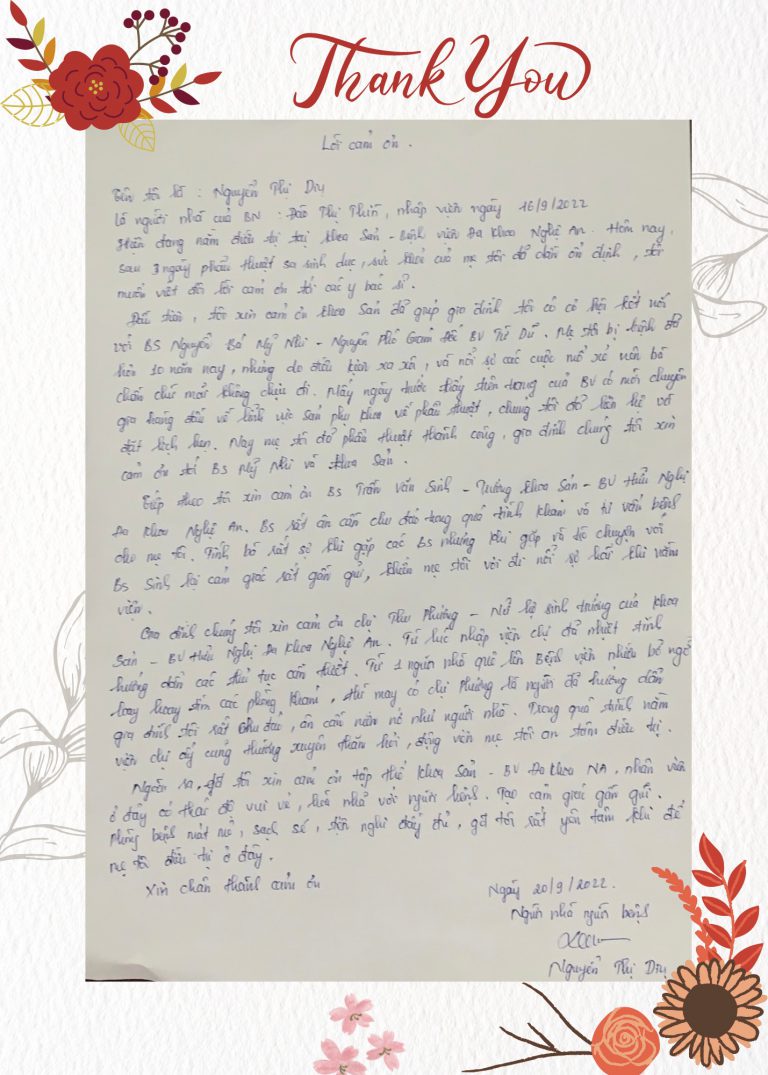 Thank You
Lời cảm ơn.
Tên tôi là : Nguyễn Thị Diu
là người nhà của BN : Đào Thị Thìn, nhập viện ngày 16/9/2022
Hiện đang nằm điều trị tại khoa Sản - Bệnh viện Đa khoa Nghệ An. Hôm nay,
sau 3 ngày phẫu thuật sa sinh dục, sức khoẻ của mẹ tôi đã dần ổn định, tôi
muốn viết đôi lời cảm ơn tới các y bác sĩ.
Đầu tiên, tôi xin cảm ơn khoa Sản đã giúp gia đình tôi có cơ hội kết nối
với BS Nguyễn Bá Mỹ Nhi - Nguyên Phó Giám đốc BV Từ Dũ. Mẹ tôi bị bệnh đã
hơn 10 năm nay, nhưng do điều kiện xa xôi, và nỗi sợ các cuộc mổ xẻ nên bà
chần chừ mãi không chịu đi. Mấy ngày trước thấy trên trang của BV có mời chuyên
gia hàng đầu về lĩnh vực sản phụ khoa về phẫu thuật, chúng tôi đã liên hệ và
đặt lịch hẹn. Nay mẹ tôi đã phẫu thuật thành công, gia đình chúng tôi xin
cảm ơn tới Bs Mỹ Nhi và khoa Sản.
Tiếp theo tôi xin cảm ơn Bs Trần Văn Sinh - Trưởng khoa Sản - BV Hữu Nghị
Đa Khoa Nghệ An. Bs rất ân cần chu đáo trong quá trình khám và tư vấn bệnh
cho mẹ tôi. Tính bà rất sợ khi gặp các Bs nhưng khi gặp và trò chuyện với
Bs Sinh lại cảm giác rất gần gũi, khiến mẹ tôi vơi đi nỗi sợ hãi khi nằm
viện.
Gia đình chúng tôi xin cảm ơn chị Thu Phương - Nữ hộ sinh trưởng của khoa
Sản - BV Hữu Nghị Đa Khoa Nghệ An. Từ lúc nhập viện chị đã nhiệt tình
hướng dẫn các thủ tục cần thiết. Từ 1 người nhà quê lên Bệnh viện nhiều bỡ ngỡ
loay hoay tìm các phòng khám, thì may có chị Phương là người đã hướng dẫn
gia đình tôi rất chu đáo, ân cần niềm nở như người nhà. Trong quá trình nằm
viện chị ấy cũng thường xuyên thăm hỏi, động viên mẹ tôi an tâm điều trị.
Ngoài ra, gđ tôi xin cảm ơn tập thể khoa Sản - BV Đa khoa NA, nhân viên
ở đây có thái độ vui vẻ, hoà nhã với người bệnh. Tạo cảm giác gần gũi.
Phòng bệnh mát mẻ, sạch sẽ, tiện nghi đầy đủ, gđ tôi rất yên tâm khi để
mẹ tôi điều trị ở đây.
Xin chân thành cảm ơn
Ngày 20/9/2022.
Người nhà người bệnh
Nguyễn Thị Diu